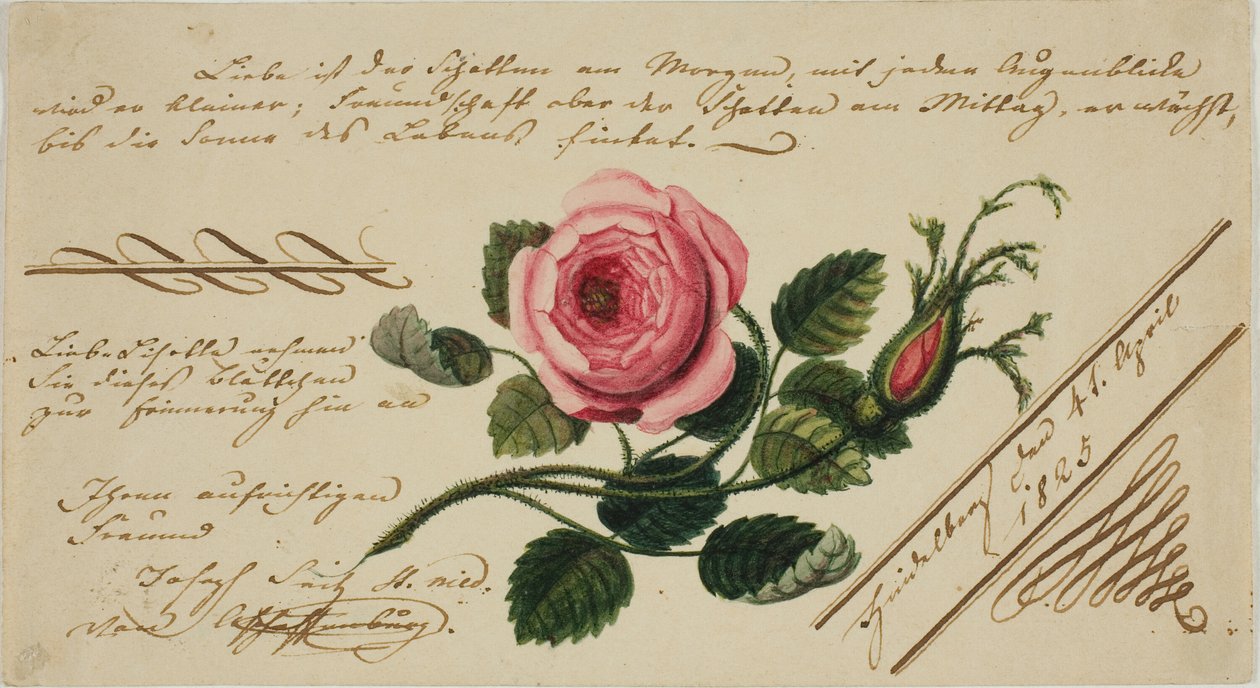 Liebe ist der Schatten am Morgen, mit jedem Augenblicke
wird er kleiner; Freundschaft aber der Schatten am Mittag, er wächst,
bis die Sonne des Lebens sinket.
Liebe Lisette nehmen
Sie dieses Blättchen
zur Erinnerung hin an
Ihren aufrichtigen
Freund
Joseph Seitz st. med.
von Aschaffenburg.
Heidelberg den 41. April
1825